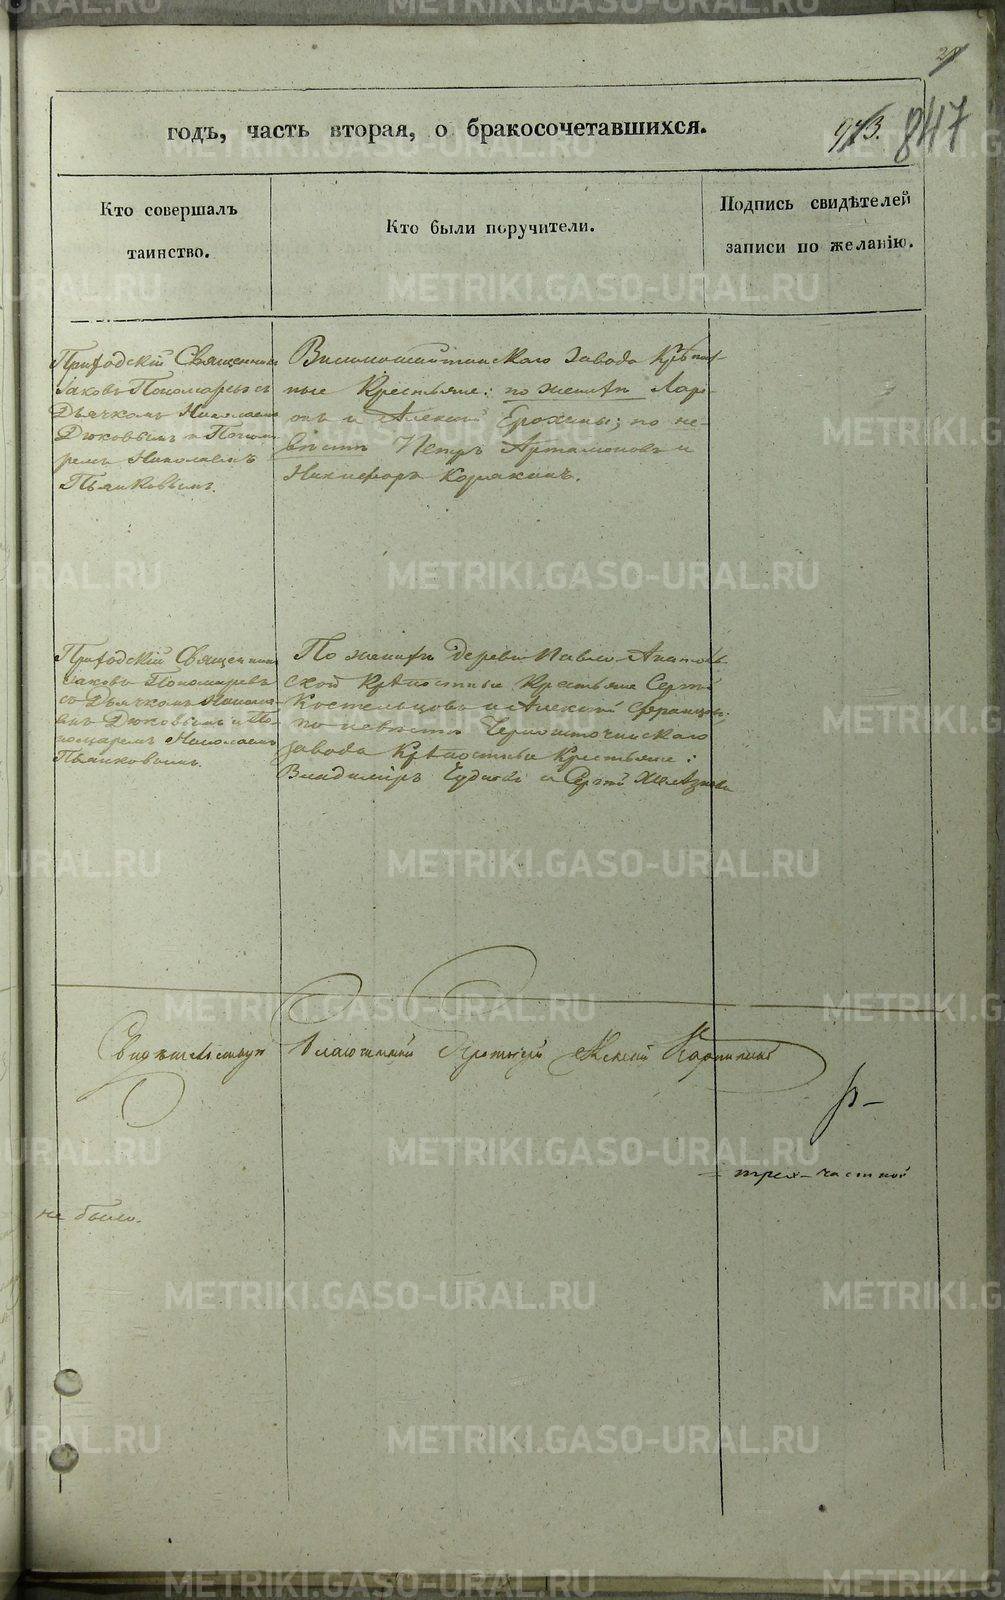 годъ, часть вторая, о бракосочетавшихся.
973. 847
Кто совершалъ
таинство.
Кто были поручители.
Подпись свидѣтелей
записи по желанію.
Приходскій Священникъ
Іаковъ Пономаревъ съ
Дьячкомъ Николаемъ
Дюковымъ и Понома
ремъ Николаемъ
Пьянковымъ.
Висимошайтанскаго завода Крѣпост
ные Крестьяне: по женихѣ Лари
онъ и Алексѣй Ерохины; по не-
вѣстѣ Петръ Артамоновъ и
Никифоръ Корякинъ.
Приходскій Священникъ
Іаковъ Пономаревъ
съ Дьячкомъ Никола
емъ Дюковымъ и По
номаремъ Николаемъ
Пьянковымъ.
По женихѣ деревни Павло-Анатоль
ской Крѣпостные Крестьяне Сергѣй
и Алексѣй
по невѣстѣ Черноисточинскаго
завода Крѣпостные Крестьяне:
Владиміръ и Сергѣй
Свидѣтельствую Благочинный Протоіерей Алексѣй Карпинскій
трех-частной
не было.
METRIKI.GASO-URAL.RU